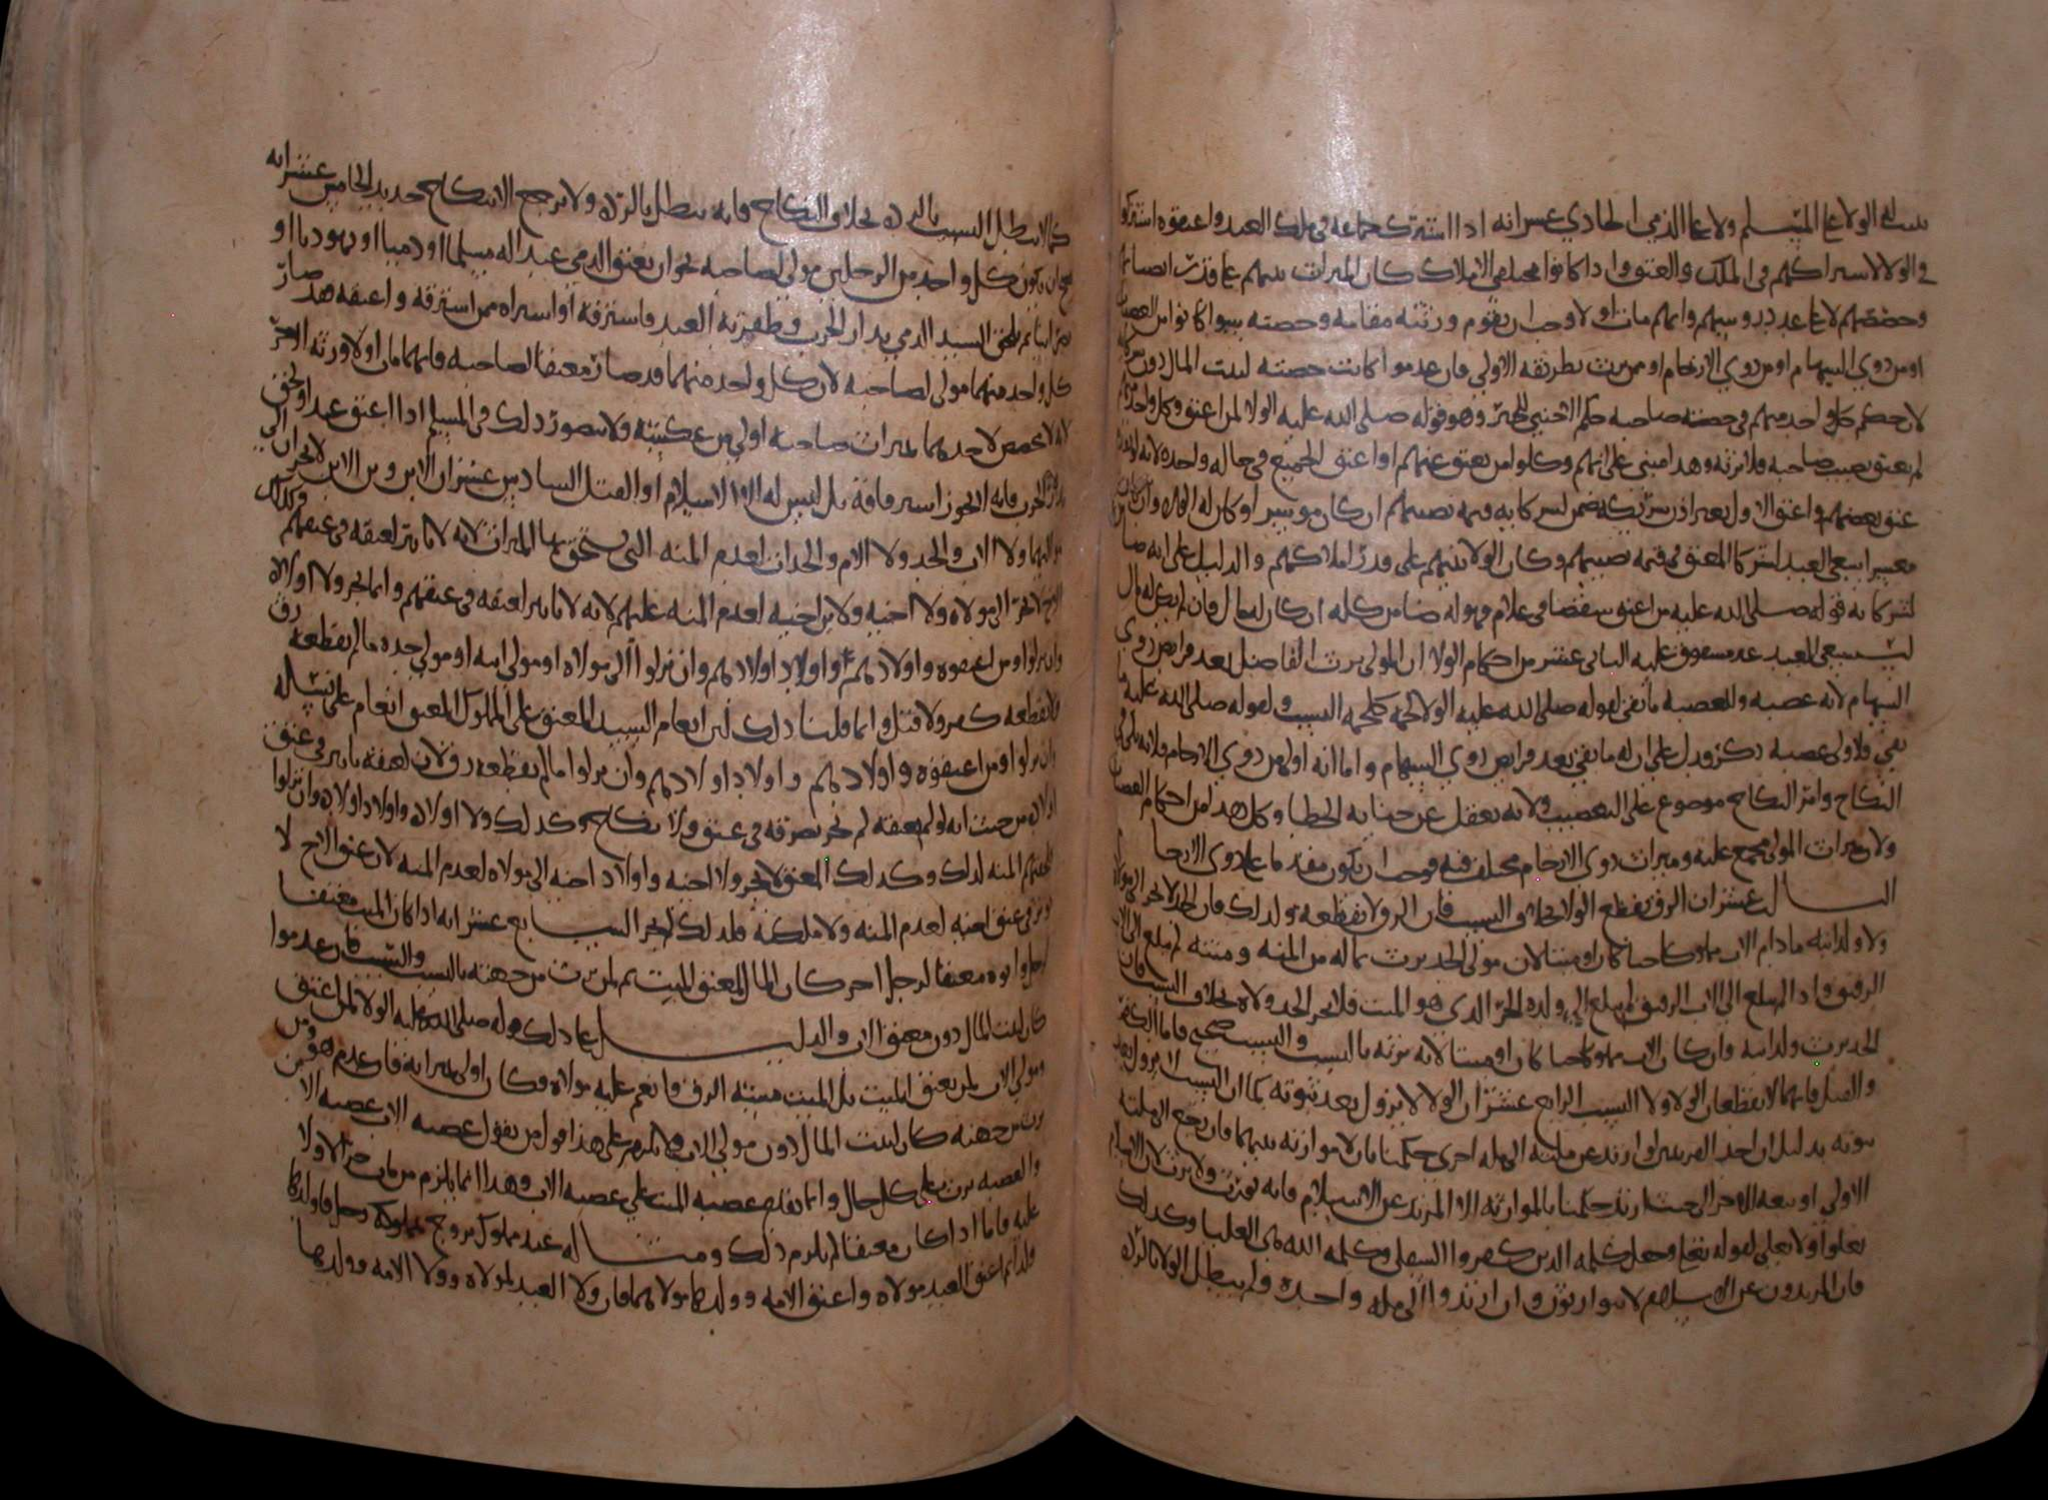 على المسلم ولا على الذمي الحادي عشر انه اذا اشترك جماعه في ملك العبد واعتقوه اشتركوا
في الولا لاشتراكهم في الملك والعتق واذا كانوا مختلفي الاملاك كان الميراث بينهم على قدر انصبائهم
وحصصهم لا على عدد روسهم وايهم مات اولا وجب ان يقوم ورثته مقامه وحصته سوا كانوا من العصبات
او من ذوي السهام او من ذوي الارحام او ممن يرث بطريقه الاولى فان عدموا كانت حصته لبيت المال دون
لان حكم كل واحد منهم في حصته صاحبه حكم الاجنبي وهو قوله صلى الله عليه الولا لمن اعتق وكل واحد منهم
لم يعتق نصيب صاحبه فلا يرثه وهذا مبني على انهم وكلوا من يعتق عنهم او اعتق الجميع في حاله واحده لانه
عتق بعضهم واعتق الاول بغير اذن شريكه ضمن لشركايه قيمه نصيبهم ان كان موسرا وكان له الولا وان كان
معسرا سعى العبد لشركا المعتق في قيمه نصيبهم وكان الولا بينهم على قدر املاكهم والدليل على انه
لشركايه قوله صلى الله عليه من اعتق شقصا في غلام فهو له ضامن كله ان كان له مال فان لم يكن له مال
استسعى العبد غير مشقوق عليه الثاني عشر من احكام الولا ان المولى يرث الفاضل بعد فرايض ذوي
السهام لانه عصبه وللعصبه ما بقي لقوله صلى الله عليه الولا لحمه كلحمه النسب ولقوله صلى الله عليه ما
بقي فلاولى عصبه ذكر ودل على ان له ما بقي بعد فرايض ذوي السهام واما انه اولى من ذوي الارحام فلانه يلي
النكاح وامر النكاح موضوع على التعصيب ولانه يعقل عن جنايه الخطا وكل هذا من احكام العصبات
ولان ميراث المولى مجمع عليه وميراث ذوي الارحام مختلف فيه فوجب ان يكون مقدما على ذوي الارحا
الثالث عشر ان الرق يقطع الولا بخلاف النسب فان الرق لا يقطعه ولذلك فان الجد لا يجر الى مولاه
ولا ولد ابنه ما دام الاب مملوكا حيا كان او ميتا لان مولى الجد يرث بما له من المنه ومنته لم تبلغ الى الاب
الرقيق واذا لم تبلغ الى الاب الرقيق لم تبلغ الى ولده الحر الذي هو الميت فلا يجر الجد ولاه بخلاف النسب فان
الجد يرث ولد ابنه وان كان الاب مملوكا حيا كان او ميتا لانه يرثه بالنسب والنسب صحيح فاما الكفر
والقتل فانهما لا يقطعان الولا ولا النسب الرابع عشر ان الولا لا يزول بعد ثبوته كما ان النسب لا يزول بعد
ثبوته بدليل ان احد المعتقين لو ارتد عن ملته الى مله اخرى حكمنا بان لا موارثه بينهما فان رجع الى ملته
الاولى او تبعه الاخر الى حيث ارتد حكمنا بالموارثه الا المرتد عن الاسلام فانه يورث ولا يرث لان الاسلام
يعلو ولا يعلى لقوله تعالى وجعل كلمه الذين كفروا السفلى وكلمه الله هي العليا وكذلك
فان المرتدون عن الاسلام لا يتوارثون وان ارتدوا الى مله واحده ولم يبطل الولا بالرده
كما لا يبطل النسب بالرده بخلاف النكاح فانه يبطل بالرده ولا يرجع الا بنكاح جديد الخامس عشر انه
يصح ان يكون كل واحد من الرجلين مولى لصاحبه نحو ان يعتق الذمي عبدا له مسلما او ذميا او يهوديا او
نصرانيا ثم يلحق السيد الذمي بدار الحرب وظفر به العبد فاسترقه او اشتراه ممن استرقه واعتقه فقد صار
كل واحد منهما مولى لصاحبه لان كل واحد منهما قد صار معتقا لصاحبه فايهما مات اولا ورثه الاخر
لانه لا مخصص لاحدهما بميراث صاحبه اولى من عكسه ولا يتصور ذلك في المسلم اذا اعتق عبدا ولحق
بدار الحرب فانه لا يجوز استرقاقه بل ليس له الا الاسلام او القتل السادس عشر ان الابن وبن الابن لا يجران الى
مواليهما ولا الاب والجد ولا الام والجدات لعدم المنه التي يستحق بها الميراث لانه لا تاثير لعتقه في عتقهم وكذلك
الاخ لا يجر الى مولاه ولا اخيه ولا بن اخيه لعدم المنه عليهم لانه لا تاثير لعتقه في عتقهم وانما يجر ولا اولاده
وان نزلوا ومن اعتقوه واولادهم واولاد اولادهم وان نزلوا الى مولاه او مولى ابيه او مولى جده ما لم يقطعه رق
فلا يقطعه كفر ولا قتل وانما قلنا ذلك لان انعام السيد المعتق على المملوك المعتق انعام على نسله
وان نزلوا ومن اعتقوه واولادهم واولاد اولادهم وان نزلوا ما لم يقطعه رق لان لعتقه تاثير في عتق
اولاده من حيث انه لو لم يعتقه لم يجز تصرفه في عتق ولا نكاح وكذلك ولا اولاده واولاد اولاده وان نزلوا
المنه لذلك وكذلك المعتق لا يجر ولا اخيه واولاد اخيه الى مولاه لعدم المنه لان عتق الاخ لا
يوثر في عتق اخيه لعدم المنه ولا ملكته فلذلك لم يجر السابع عشر انه اذا كان الميت معتقا
لرجل وابوه معتقا لرجل اخر كان المال لمعتق الميت ثم لمن يرث من جهته بالنسب والسبب فان عدموا
كان لبيت المال دون معتق الاب والدليل على ذلك قوله صلى الله عليه الولا لمن اعتق
ومولى الاب لم يعتق الميت بل الميت مسته الرق فانعم عليه مولاه وكان اولى بميراثه فان عدم هو ومن
يرث من جهته كان لبيت المال دون مولى الاب ولا يلزم على هذا قول من يقول عصبه الاب عصبه الابن
والعصبه يرث على كل حال وانما تقدم عصبه الميت على عصبه الاب وهذا انما يلزم من مات حر لا ولا
عليه فاما اذا كان معتقا لم يلزم ذلك ومثاله عبد مملوك تزوج مملوكه رجل فاولدها
ولدا ثم اعتق العبد مولاه واعتق الامه وولدها مولاهما فان ولا العبد لمولاه وولا الامه وولدها